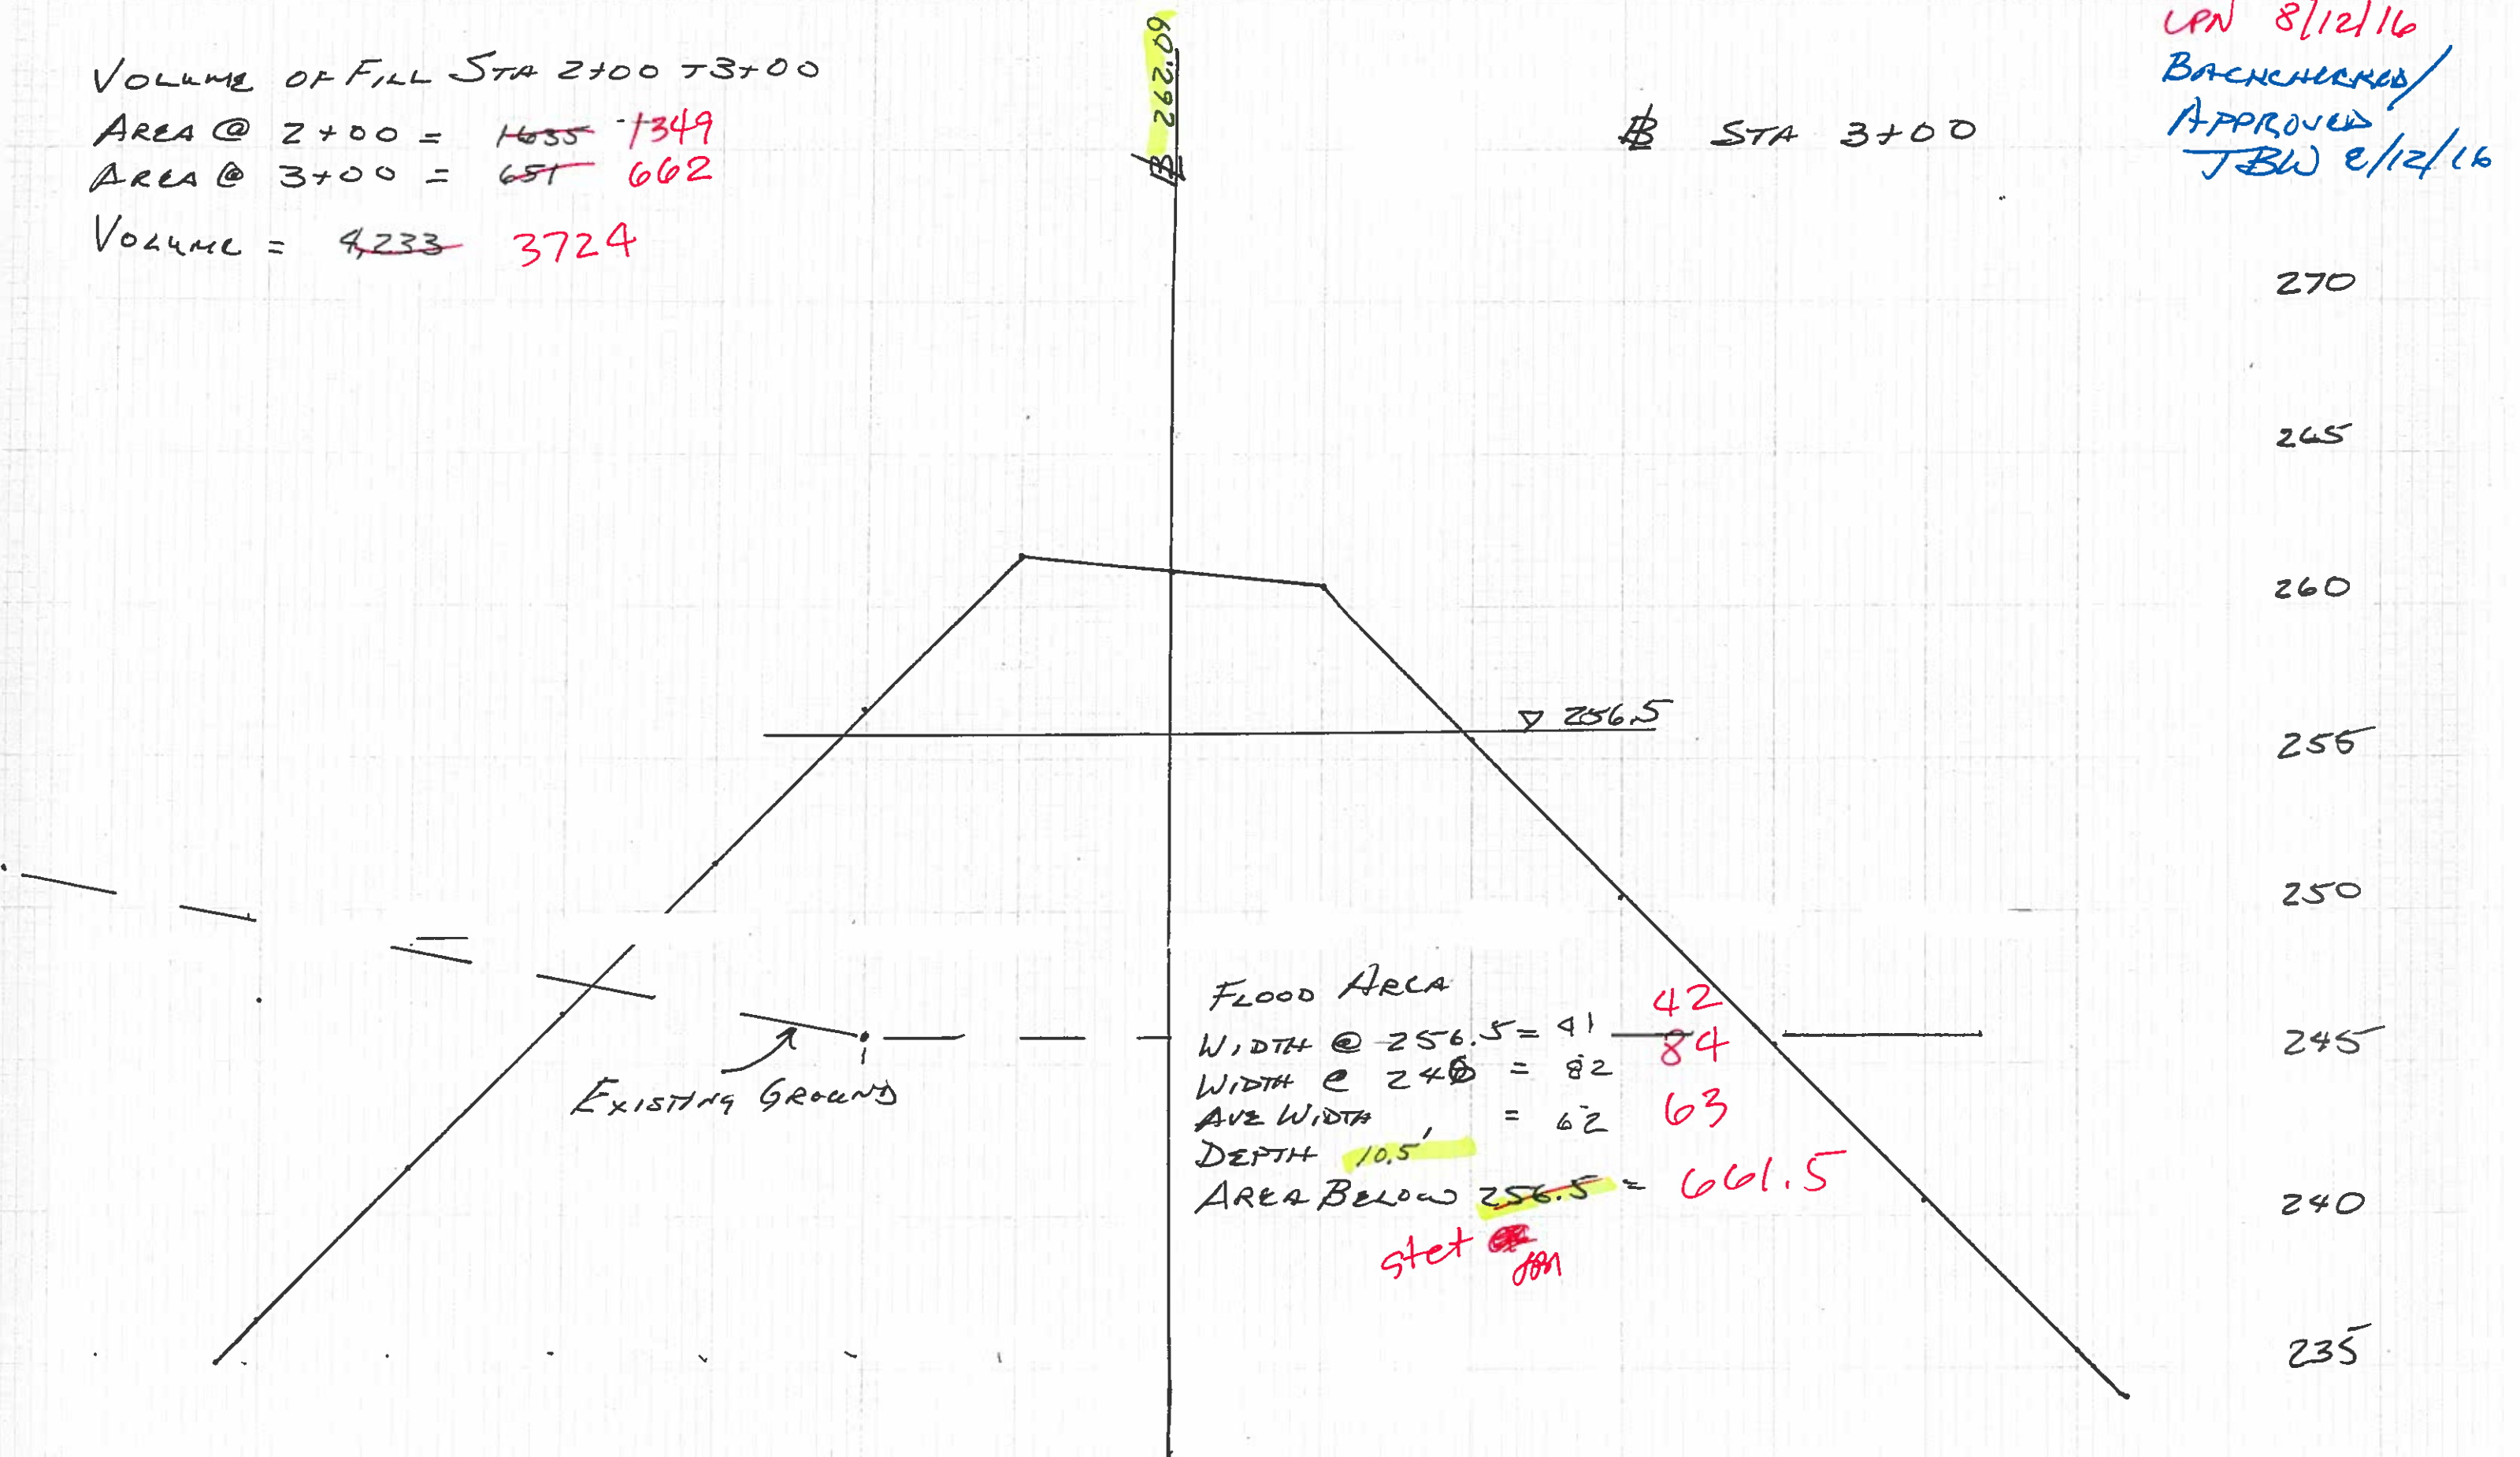 VOLUME OF FILL STA 2+00 - 3+00
AREA @ 2+00 = 1635 1349
AREA @ 3+00 = 651 662
VOLUME = 4,233 3724
262.09
STA 3+00
LPN 8/12/16
BACKCHECKED/
APPROVED
JBW 8/12/16
270
265
260
255
250
245
240
235
256.5
EXISTING GROUND
FLOOD AREA
WIDTH @ 256.5 = 41 42
WIDTH @ 246 = 82 84
AVE WIDTH = 62 63
DEPTH 10.5'
AREA BELOW 256.5 = 661.5
stet